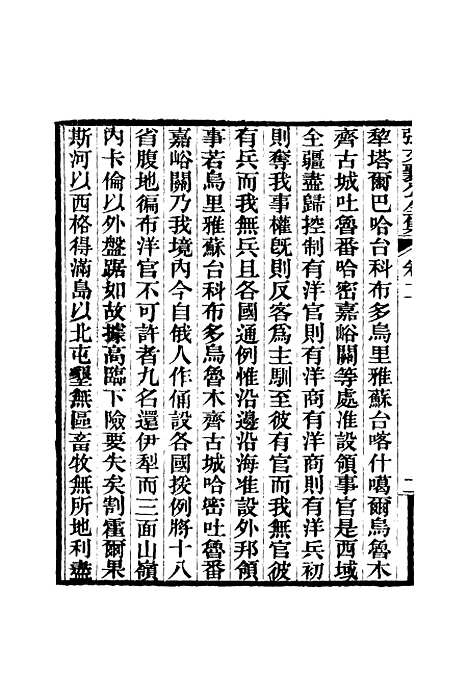 犂塔爾巴哈台科布多烏里雅蘇台喀什噶爾烏魯木
齊古城吐魯番哈密嘉峪關等處准設領事官是西域
全疆盡歸控制有洋官則有洋商有洋商則有洋兵初
則奪我事權旣則反客爲主馴至彼有官而我無官彼
有兵而我無兵且各國通例惟沿邊沿海准設外邦領
事若烏里雅蘇台科布多烏魯木齊古城哈密吐魯番
嘉峪關乃我境內今自俄人作俑設各國援例將十八
省腹地徧布洋官不可許者九名還伊犂而三面山嶺
內卡倫以外盤踞如故據高臨下險要失矣割霍爾果
斯河以西格得滿島以北屯墾無區畜牧無所地利盡